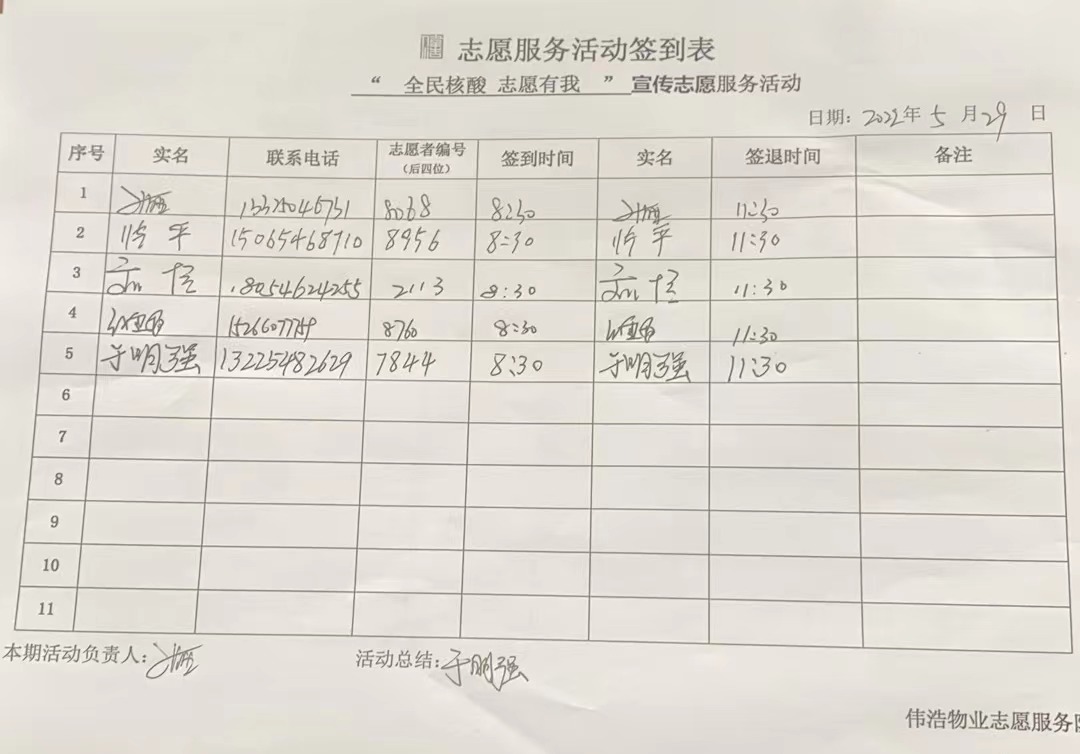 志愿服务活动签到表
“ 全民核酸 志愿有我 ” 宣传志愿服务活动
日期: 2022年 5 月 29 日
序号 实名 联系电话 志愿者编号(后四位) 签到时间 实名 签退时间 备注
1 8068 8:30 11:30
2 平 15065468710 8956 8:30 平 11:30
3 18054624255 2113 8:30 11:30
4 8760 8:30 11:30
5 于明强 13225482629 7844 8:30 于明强 11:30
6
7
8
9
10
11
本期活动负责人: 活动总结: 于明强
伟浩物业志愿服务队